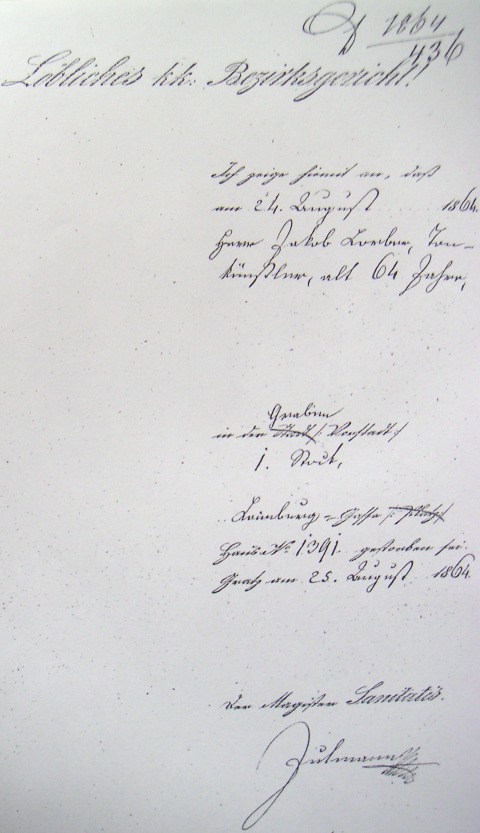 1864
436
Löbliches kk. Bezirksgericht!
Ich zeige hiemit an, daß
am 24. August 1864.
Herr Jakob Lorber, Ton-
künstler, alt 64 Jahre,
Graben
in der Stadt /: Vorstadt :/
1. Stock,
Gasse /: Platz :/
Haus No 1391. gestorben sei.
Gratz am 25. August 1864.
Der Magister Sanitatis.